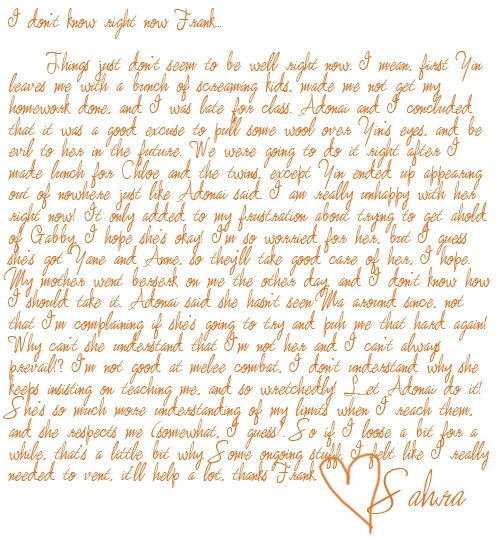 I don't know right now Frank...
Things just don't seem to be well right now. I mean, first Yin
leaves me with a bunch of screaming kids, made me not get my
homework done, and I was late for class. Adonai and I concluded
that it was a good excuse to pull some wool over Yin's eyes, and be
evil to her in the future. We were going to do it right after I
made lunch for Chloe and the twins, except Yin ended up appearing
out of nowhere just like Adonai said. I am really unhappy with her
right now! It only added to my frustration about trying to get ahold
of Gabby. I hope she's okay! I'm so worried for her, but I guess
she's got Yane and Ame, so they'll take good care of her, I hope.
My mother went berserk on me the other day and I don't know how
I should take it. Adonai said she hasn't seen Ma around since, not
that I'm complaining if she's going to try and puh me that hard again!
Why can't she understand that I'm not her and I can't always
prevail!? I'm not good at melee combat, I don't understand why she
keeps insisting on teaching me, and so wretchedly! Let Adonai do it!
She's so much more understanding of my limits when I reach them,
and she respects me (somewhat, I guess). So if I loose a bit for a
while, that's a little bit why. Some ongoing stuff. I felt like I really
needed to vent, it'll help a lot, thanks Frank
Sahra